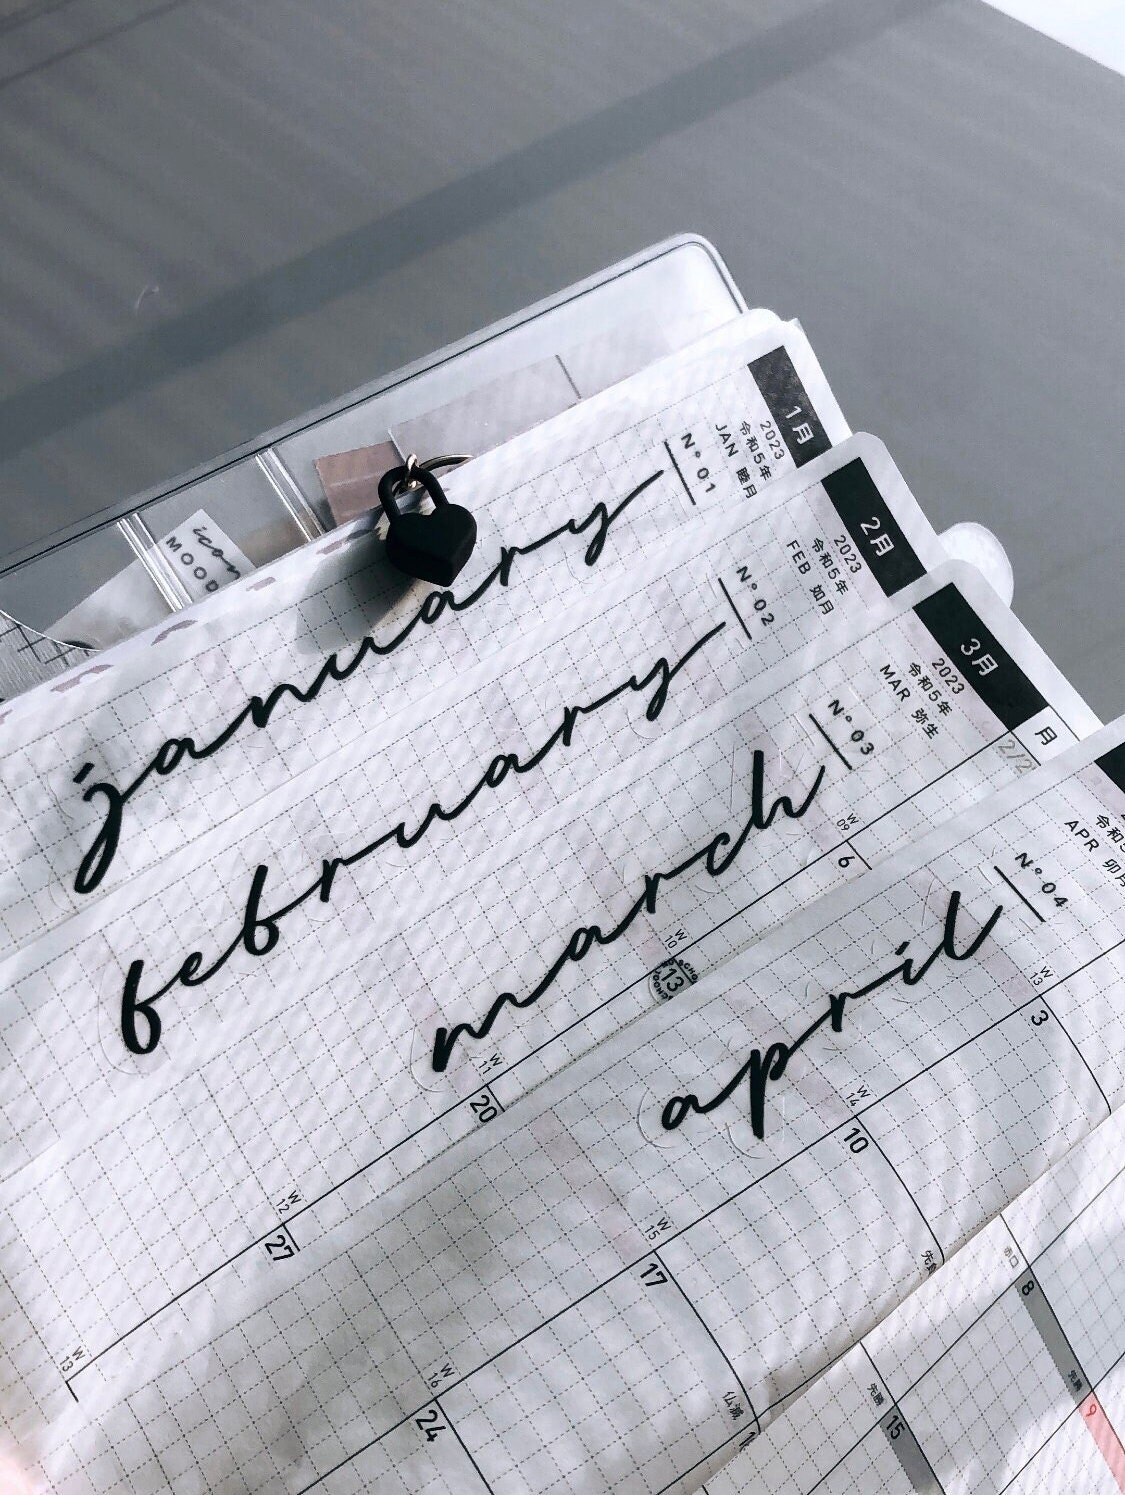 icon
MOOD
january
Nº 01
2023
令和5年
JAN 睦月
1月
february
Nº 02
2023
令和5年
FEB 如月
2月
march
Nº 03
2023
令和5年
MAR 弥生
3月
月
W
09
6
W
10
13
W
11
20
W
12
27
W
13
april
Nº 04
令和5
APR 卯月
W
13
3
W
14
10
先負
W
15
17
仏滅
W
16
24
8
先勝
9
先勝
15